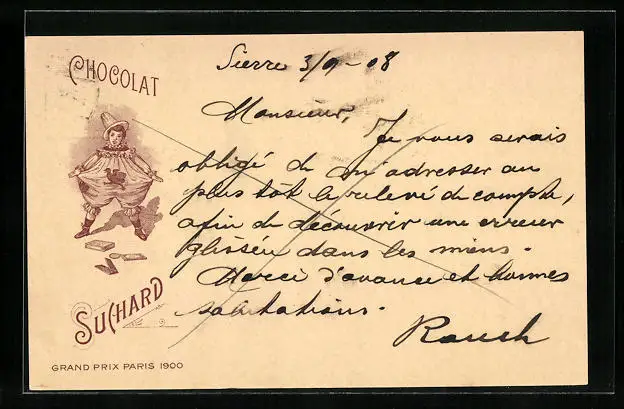 CHOCOLAT
SUCHARD
GRAND PRIX PARIS 1900
Sierre 3/9-08
Monsieur, Je vous serais
obligé de m'adresser au
plus tôt le relevé de compte,
afin de découvrir une erreur
glissée dans les miens.
Merci d'avance et bonnes
salutations.
Rauch